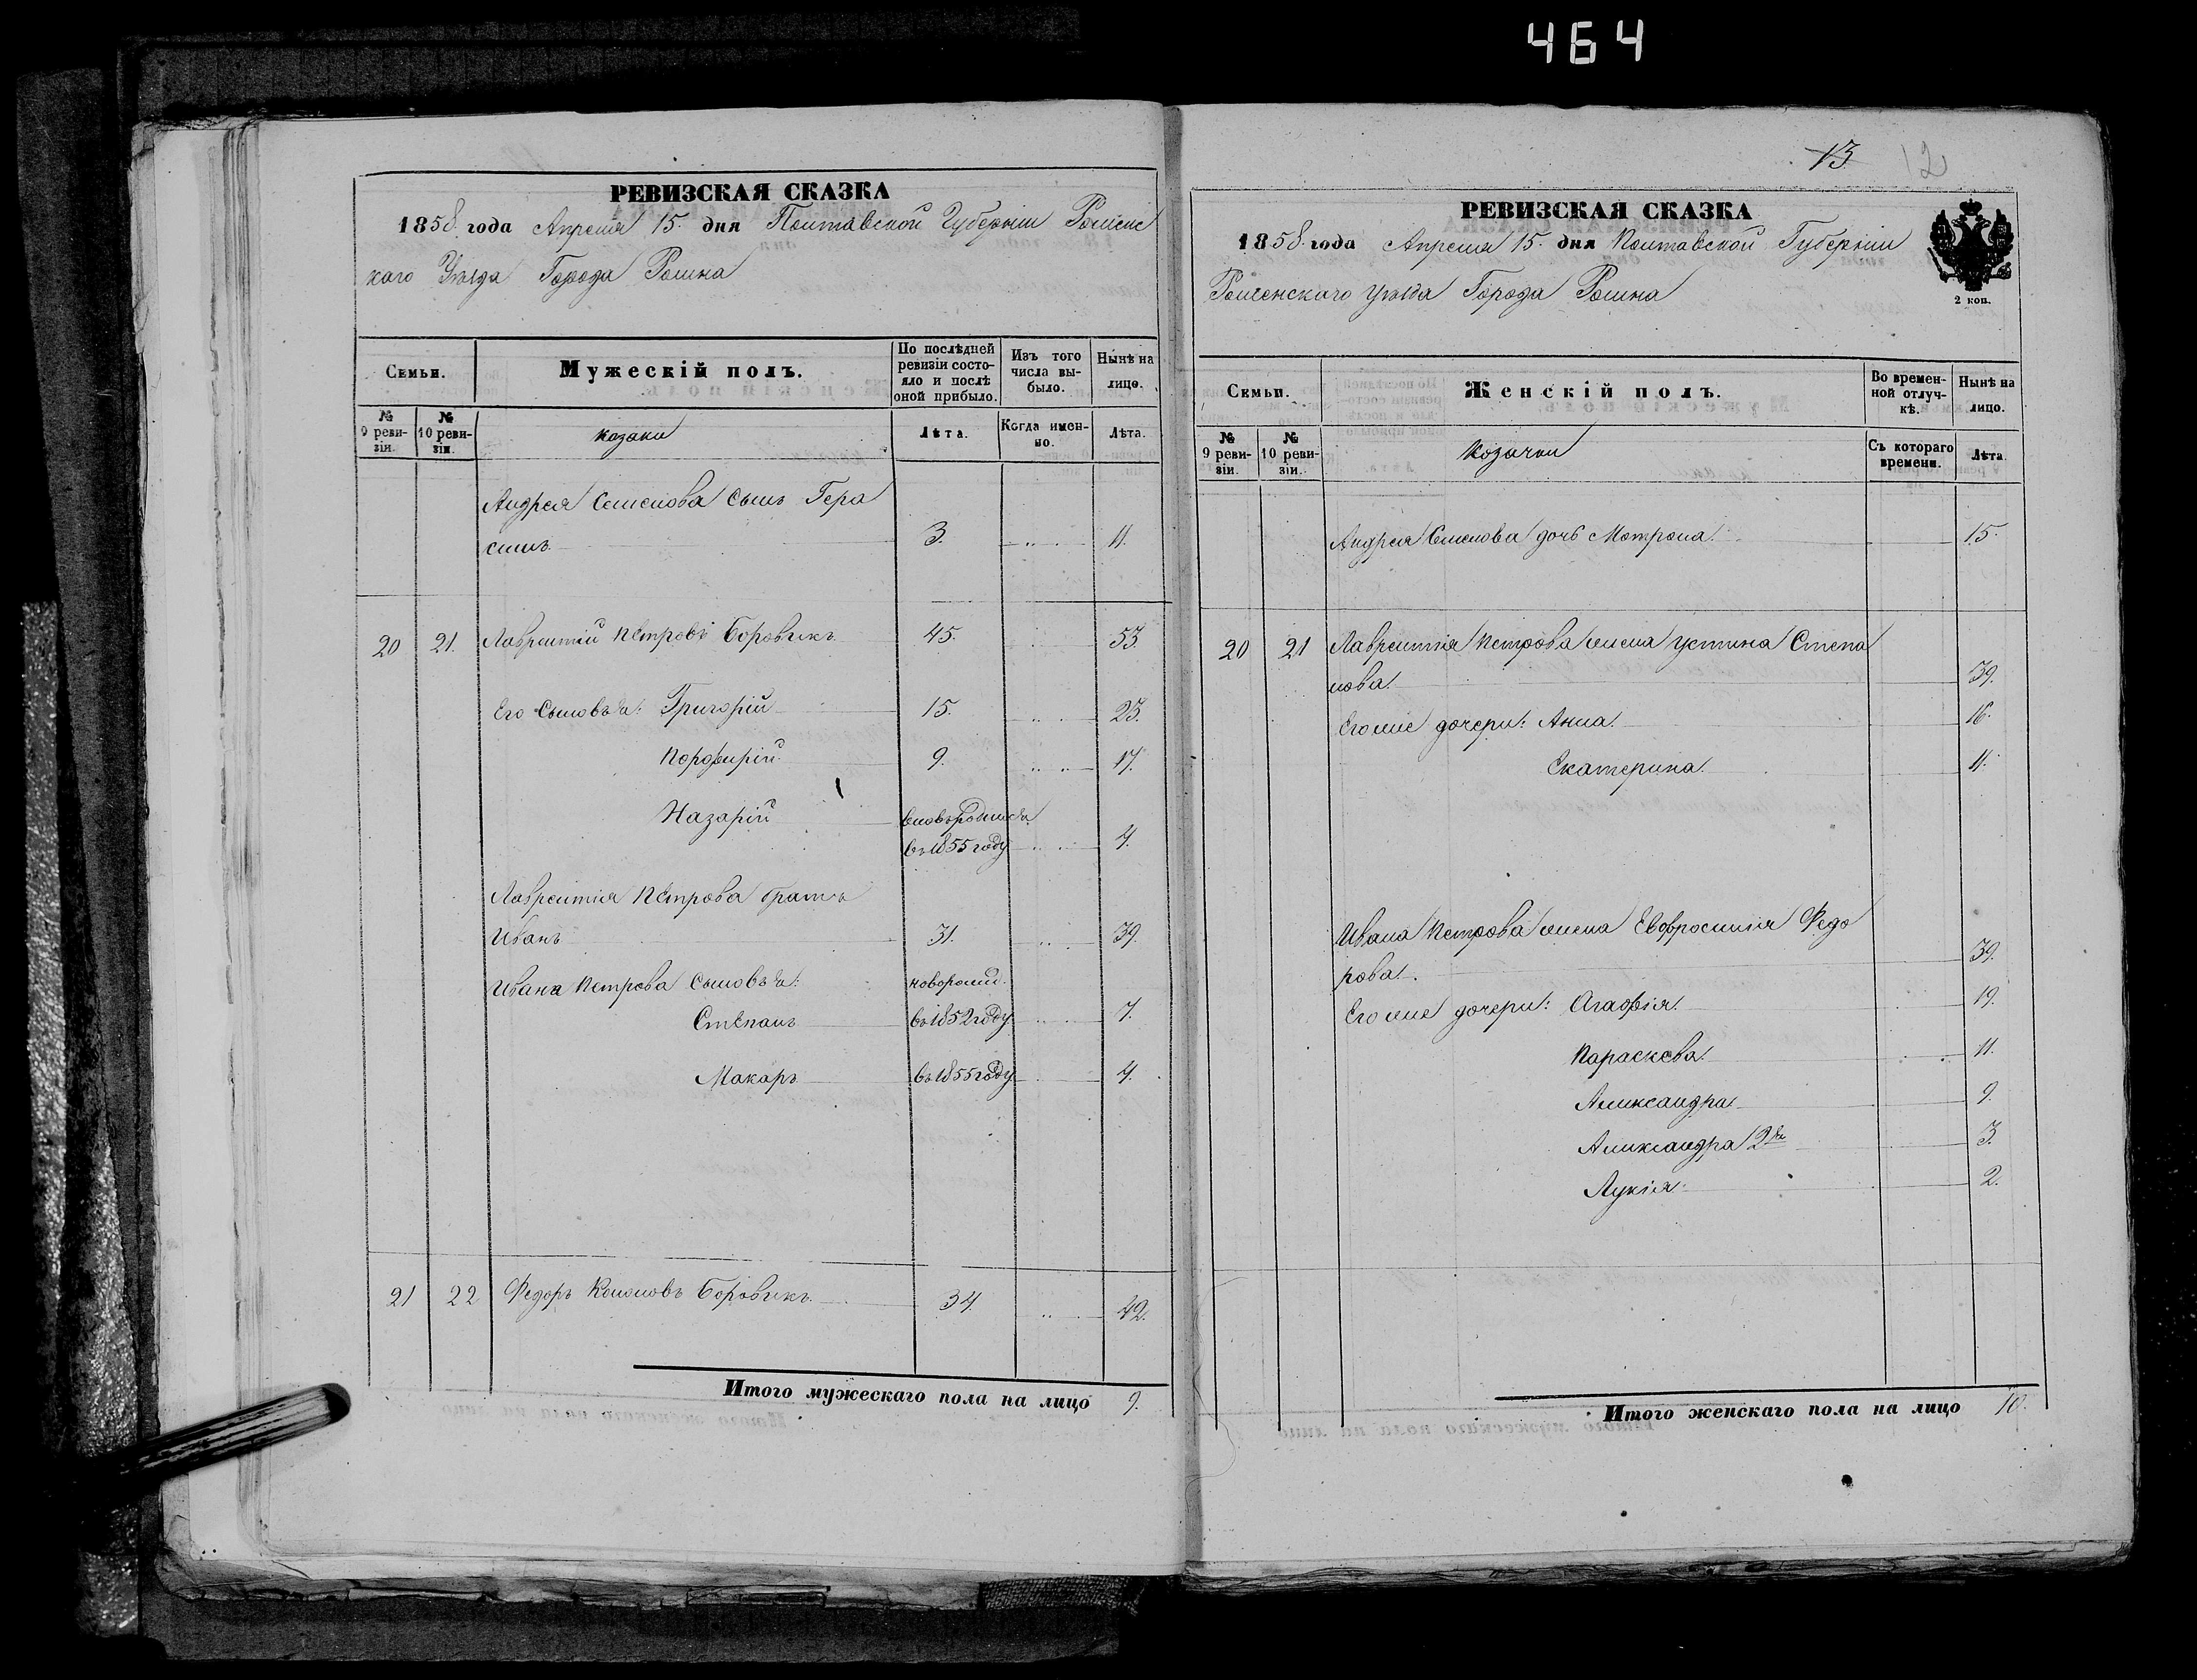 464
РЕВИЗСКАЯ СКАЗКА
1858 года Апреля 15. дня Полтавской Губерніи Роменс
каго Уѣзда Города Ромна
Семьи.
Мужескій полъ.
По послѣдней ревизіи состояло и послѣ оной прибыло.
Изъ того числа выбыло.
Нынѣ на лицо.
№ 9 ревизіи.
№ 10 ревизіи.
козаки
Лѣта.
Когда именно.
Лѣта.
Андрея Семенова сынъ Гера
симъ 3. 11.
20 21. Лаврентій Петровъ Боровыкъ 45. 53.
Его сыновья: Григорій 15. 23.
Порфирій 9. 17.
Назарій вновьродился
въ 1855 году 4.
Лаврентія Петрова братъ
Иванъ 31. 39.
Ивана Петрова сыновья: новорожд.
Степанъ въ 1852 году 7.
Макаръ въ 1855 году 4.
21 22 Федоръ Кононовъ Боровыкъ 34. 42.
Итого мужескаго пола на лицо 9.
13 12
РЕВИЗСКАЯ СКАЗКА
1858 года Апреля 15. дня Полтавской Губерніи
Роменскаго уѣзда Города Ромна
2 коп.
Семьи.
Женскій полъ.
Во временной отлучкѣ.
Нынѣ на лицо.
№ 9 ревизіи.
№ 10 ревизіи.
Козачки
Съ котораго времени.
Лѣта
Андрея Семенова дочь Мотрона. 15.
20 21 Лаврентія Петрова жена Устина Степа
нова. 39.
Его же дочери: Анна. 16.
Екатерина. 11.
Ивана Петрова жена Евфросинія Федо
рова. 39.
Его же дочери: Агафія. 19.
Параскева. 11.
Александра 9.
Александра 2я 3.
Лукія 2.
Итого женскаго пола на лицо 10.